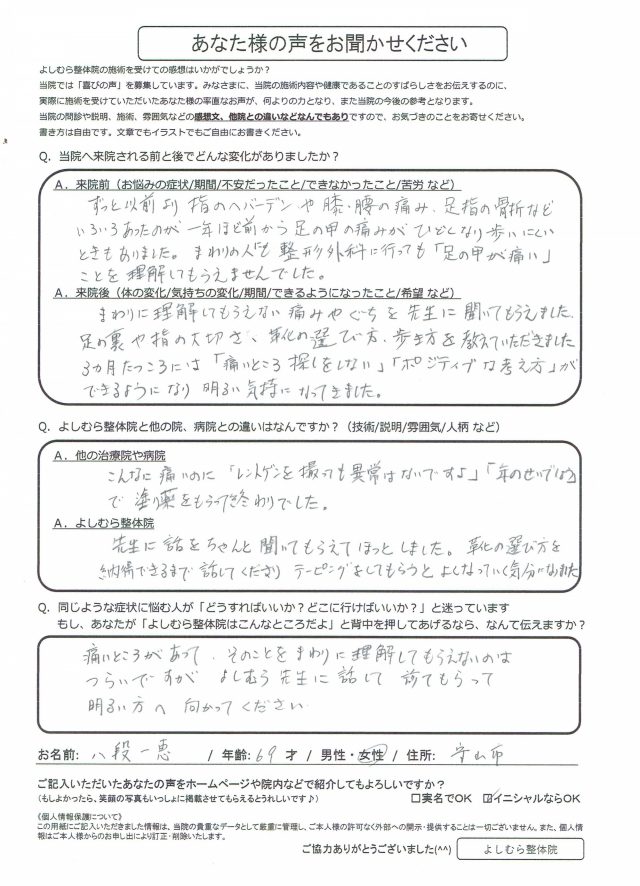 あなた様の声をお聞かせください
よしむら整体院の施術を受けての感想はいかがでしょうか？
当院では「喜びの声」を募集しています。みなさまに、当院の施術内容や健康であることのすばらしさをお伝えするのに、
実際に施術を受けていただいたあなた様の率直なお声が、何よりの力となり、また当院の今後の参考となります。
当院の問診や説明、施術、雰囲気などの感想文、他院との違いなどなんでもありですので、お気づきのことをお寄せください。
書き方は自由です。文章でもイラストでもご自由にお書きください。
Q．当院へ来院される前と後でどんな変化がありましたか？
A．来院前（お悩みの症状/期間/不安だったこと/できなかったこと/苦労 など）
ずっと以前より 指のヘバーデンや膝・腰の痛み、足指の骨折など
いろいろあったのが 一年ほど前から足の甲の痛みがひどくなり歩いにくい
ときもありました。まわりの人にも 整形外科に行っても「足の甲が痛い」
ことを理解してもらえませんでした。
A．来院後（体の変化/気持ちの変化/期間/できるようになったこと/希望 など）
まわりに理解してもらえない痛みやぐちを先生に聞いてもらえました。
足の裏や指の大切さ、靴の選び方、歩き方を教えていただきました
3カ月たつころには「痛いところ探しをしない」「ポジティブな考え方」が
できるようになり 明るい気持になってきました。
Q．よしむら整体院と他の院、病院との違いはなんですか？（技術/説明/雰囲気/人柄 など）
A．他の治療院や病院
こんなに痛いのに「レントゲンを撮っても異常はないですよ」「年のせいでは」
で 塗り薬をもらって終わりでした。
A．よしむら整体院
先生に話をちゃんと聞いてもらえてほっとしました。靴の選び方を
納得できるまで話してくださり テーピングをしてもらうとよくなっていく気分になりました
Q．同じような症状に悩む人が「どうすればいいか？どこに行けばいいか？」と迷っています
もし、あなたが「よしむら整体院はこんなところだよ」と背中を押してあげるなら、なんて伝えますか？
痛いところがあって、そのことをまわりに理解してもらえないのは
つらいですが よしむら先生に話して 診てもらって
明るい方へ 向かってください
お名前: 八段一恵 / 年齢: 69 才 / 男性・女性 / 住所: 守山市
ご記入いただいたあなたの声をホームページや院内などで紹介してもよろしいですか？
（もしよかったら、笑顔の写真もいっしょに掲載させてもらえるとうれしいです♪） □実名でOK ☑イニシャルならOK
《個人情報保護について》
この用紙にご記入いただきました情報は、当院の貴重なデータとして厳重に管理し、ご本人様の許可なく外部への開示・提供することは一切ございません。また、個人情
報はご本人様からのお申し出により訂正・削除いたします。
ご協力ありがとうございました(^^) よしむら整体院